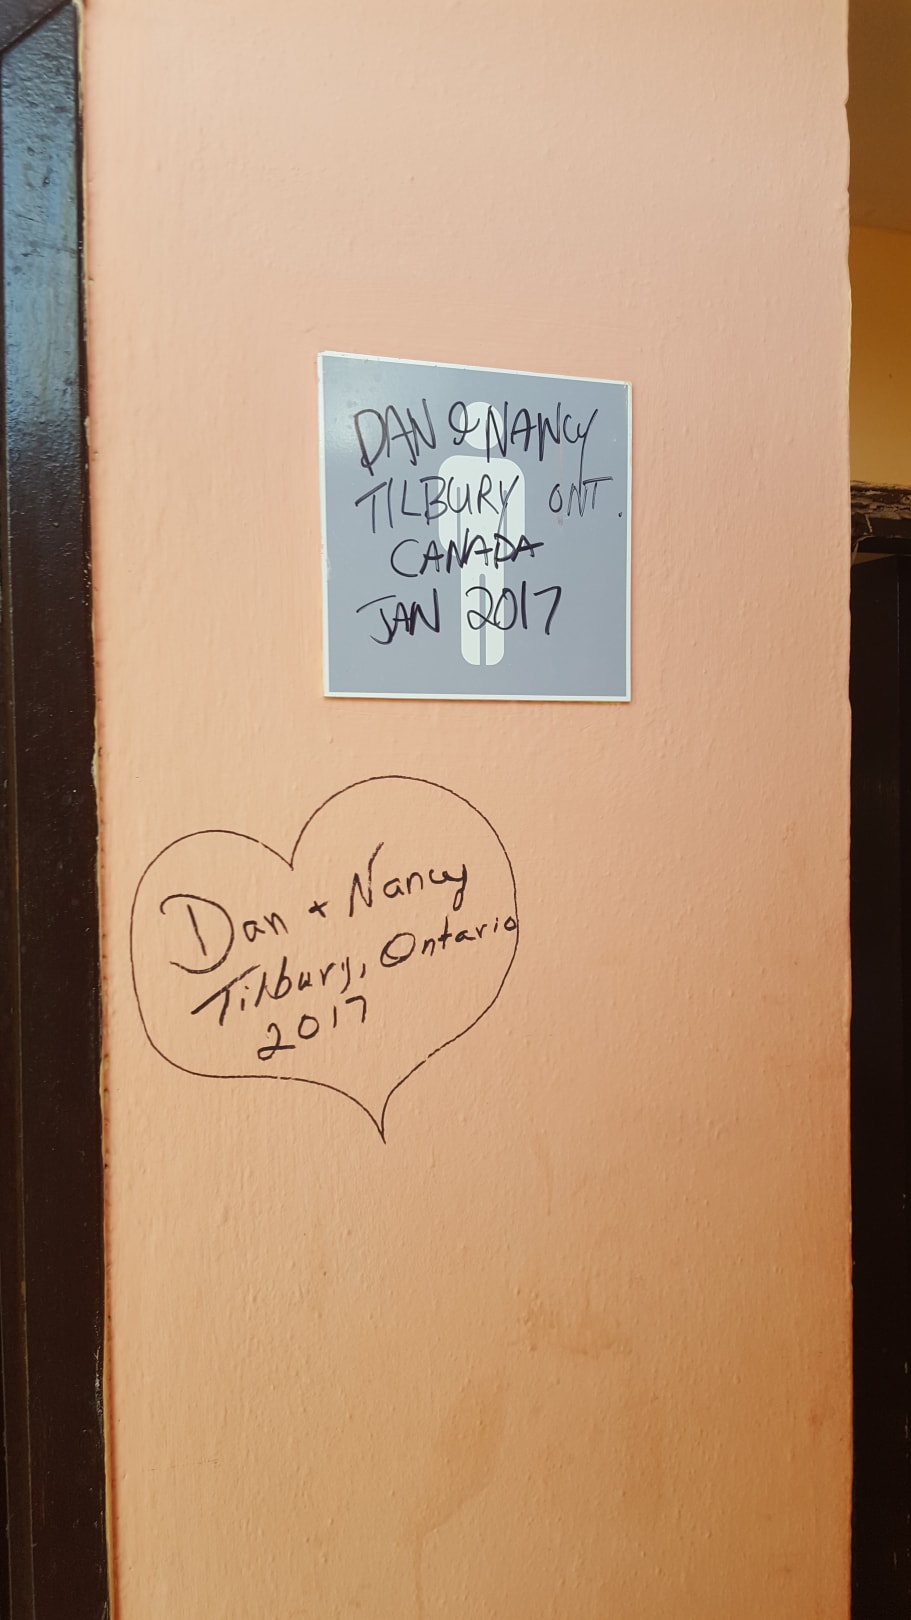 DAN & NANCY
TILBURY ONT.
CANADA
JAN 2017
Dan + Nancy
Tilbury, Ontario
2017